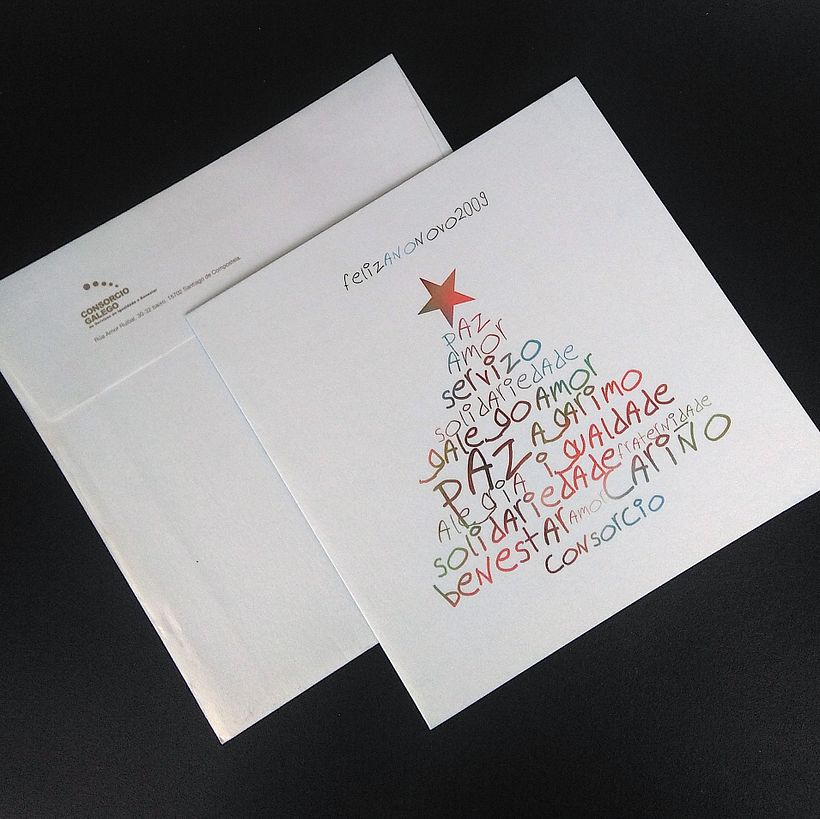 CONSORCIO
GALEGO
de Servizos de Igualdade e Benestar
Rúa Amor Ruibal, 30-32 baixo. 15702 Santiago de Compostela.
felizANONOVO2009
PAZ
Amor
servizo
solidariedade
galego amor
PAZ agarimo
Alegría igualdade
solidariedade fraternidade
benestar amor Cariño
consorcio